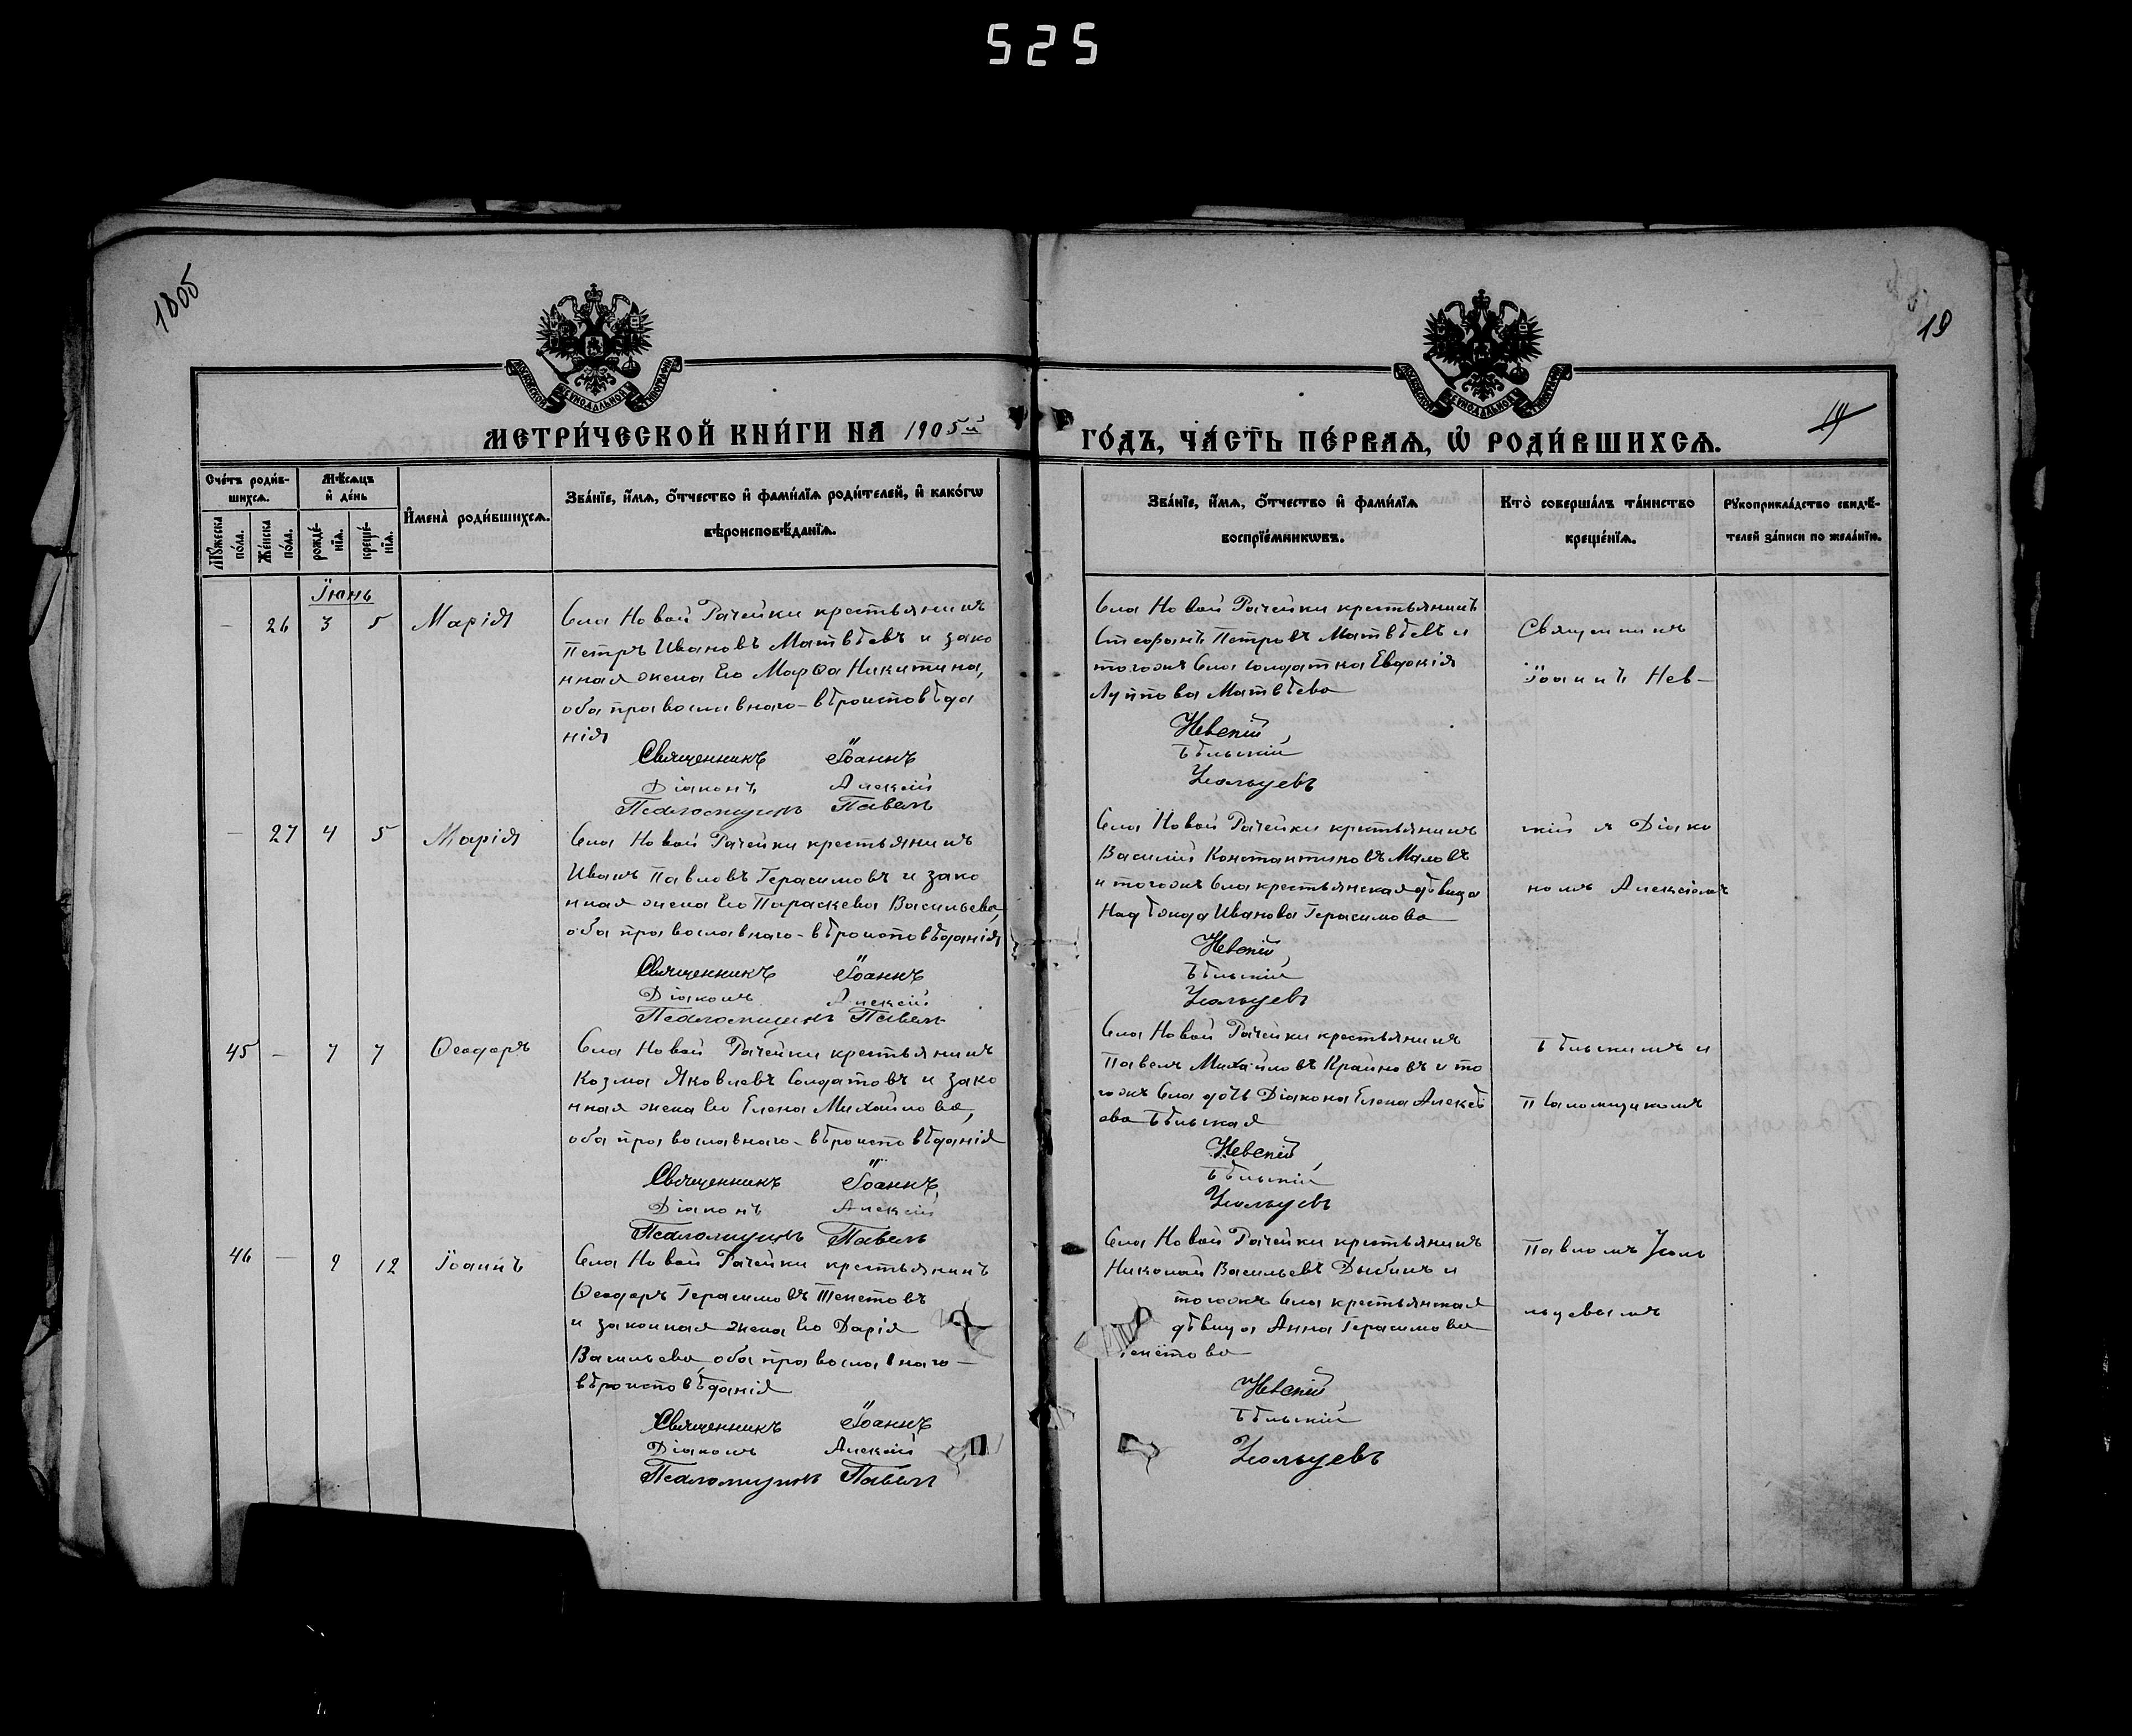 525
1805
19
19
МЕТРИ́ЧЕСКОЙ КНИ́ГИ НА 1905й
ГО́ДЪ, ЧА́СТЬ ПЕ́РВАѦ, Ѡ РОДИ́ВШИХСѦ.
Сче́тъ роди́в-
шихсѧ.
Мѣ́сѧцъ
и҆ де́нь
Мꙋ́жеска
по́ла.
Же́нска
по́ла.
рожде́-
нїѧ.
креще́-
нїѧ.
И҆мена̀ роди́вшихсѧ.
Зва́нїе, и҆́мѧ, ѻ҆́тчество и҆ фами́лїѧ роди́телей, и҆ како́гѡ
вѣроисповѣ́данїѧ.
Зва́нїе, и҆́мѧ, ѻ҆́тчество и҆ фами́лїѧ
воспрїе́мникѡвъ.
Кто̀ соверша́лъ та́инство
креще́нїѧ.
Рꙋкоприкла́дство свидѣ́-
телей за́писи по жела́нїю.
Їюнь
— 26 3 5 Марія
Села Новой Рачейки крестьянинъ
Петръ Ивановъ Матвѣевъ и зако
нная жена его Марѳа Никитина,
оба православнаго-вѣроисповѣда
нія
Священникъ Їоаннъ
Діаконъ Алексій
Псаломщикъ Павелъ
Села Новой Рачейки крестьянинъ
Стефанъ Петровъ Матвѣевъ и
тогожъ села солдатка Евдокія
Матвѣева
Невскій
Бѣльскій
Священникъ
Їоаннъ Нев-
— 27 4 5 Марія
Села Новой Рачейки крестьянинъ
Иванъ Павловъ Герасимовъ и зако
нная жена его Параскева Васильева,
оба православнаго-вѣроисповѣданія
Священникъ Їоаннъ
Діаконъ Алексій
Псаломщикъ Павелъ
Села Новой Рачейки крестьянинъ
Василій Константиновъ Маловъ
и тогожъ села крестьянская дѣвица
Надѣжда Иванова Герасимова
Невскій
Бѣльскій
скій и Діако
номъ Алексіемъ
45 — 7 7 Ѳеодоръ
Села Новой Рачейки крестьянинъ
Козма Яковлевъ Солдатовъ и зако
нная жена его Елена Михайлова,
оба православнаго-вѣроисповѣданія
Священникъ Їоаннъ
Діаконъ Алексій
Псаломщикъ Павелъ
Села Новой Рачейки крестьянинъ
Павелъ Михайловъ Крайновъ и то
гожъ села дочь Діакона Елена Алексѣ
ева Бѣльская
Невскій
Бѣльскій
Бѣльскимъ и
Псаломщикомъ
46 — 9 12 Їоаннъ
Села Новой Рачейки крестьянинъ
Ѳеодоръ Герасимовъ Тенетовъ
и законная жена его Дарія
Васильева оба православнаго-
вѣроисповѣданія
Священникъ Їоаннъ
Діаконъ Алексій
Псаломщикъ Павелъ
Села Новой Рачейки крестьянинъ
Николай Васильевъ Дыбинъ и
тогожъ села крестьянская
дѣвица Анна Герасимова
Тенетова
Невскій
Бѣльскій
Павломъ